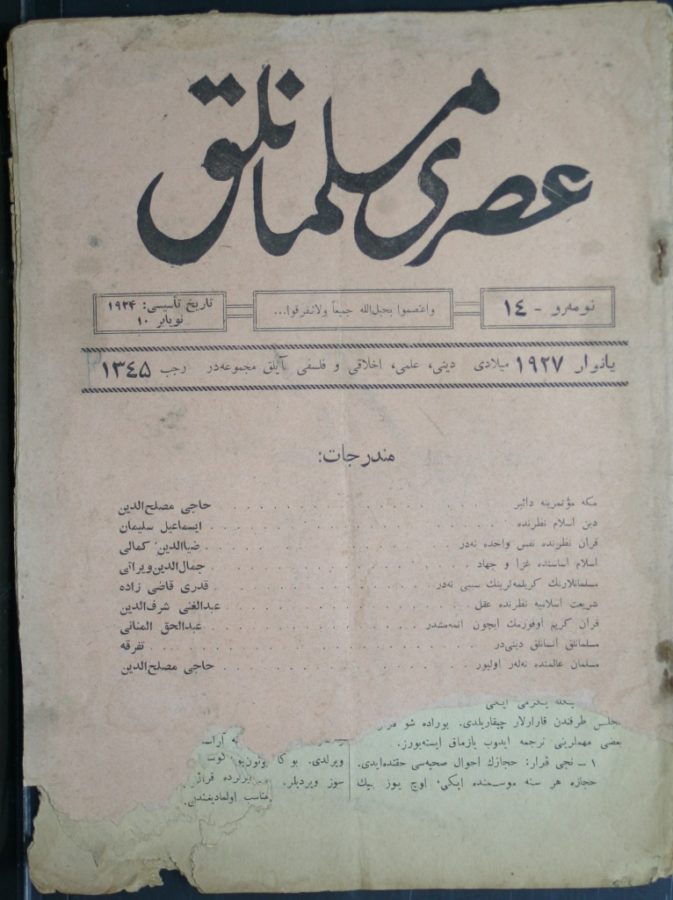 عصری مسلمانلق
نومه‌رو - ١٤
واعتصموا بحبل‌الله جمیعاً ولاتفرقوا...
تاریخ تأسیسی: ١٩٢٤
نویابر ١٠
یانوار ١٩٢٧ میلادی دینی، علمی، اخلاقی و فلسفی آیلق مجموعه‌در رجب ١٣٤٥
مندرجات:
مکه مؤتمرینه دائیر . . . حاجی مصلح‌الدین
دین اسلام نظرنده . . . ایسماعیل سلیمان
قران نظرنده نفس واحده نه‌در . . . ضیاالدین کمالی
اسلام اساسنده غزا و جهاد . . . جمال‌الدین ویرانی
مسلمانلارنك کریلمه‌لرینك سببی نه‌در . . . قدری قاضی زاده
شریعت اسلامیه نظرنده عقل . . . عبدالغنی شرف‌الدین
قران کریم اوقورمك ایچون ائمه‌مشدر . . . عبدالحق المنانی
مسلمانلق انسانلق دینی‌در . . . تفرقه
مسلمان عالمنده نه‌لر اولیور . . . حاجی مصلح‌الدین
یکرمی ایکی
طرفندن قارارلار چیقاریلدی. یوراده شو
مهملرینی ترجمه ایدوب یازماق ایسته‌یورز.
١ – نجی قرار: حجازك احوال صحیه‌سی حقنده‌ایدی.
حجازه هر سنه موسمنده ایکی اوچ یوز بیك
ویرلدی. بو
سوز ویردیلر.
اولمادیغندن